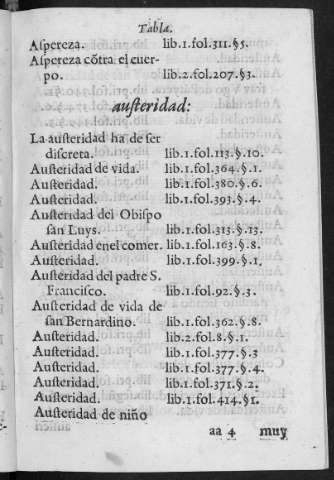 Tabla.
Aspereza. lib.1.fol.311.§5.
Aspereza cõtra el cuer-
po. lib.2.fol.207.§3.
austeridad:
La austeridad ha de ser
discreta. lib.1.fol.113.§.10.
Austeridad de vida. lib.1.fol.364.§.1.
Austeridad. lib.1.fol.380.§.6.
Austeridad. lib.1.fol.393.§.4.
Austeridad del Obispo
san Luys. lib.1.fol.315.§.13.
Austeridad enel comer. lib.1.fol.163.§.8.
Austeridad. lib.1.fol.399.§.1.
Austeridad del padre S.
Francisco. lib.1.fol.92.§.3.
Austeridad de vida de
san Bernardino. lib.1.fol.362.§.8.
Austeridad. lib.2.fol.8.§.1.
Austeridad. lib.1.fol.377.§.3
Austeridad. lib.1.fol.377.§.4.
Austeridad. lib.1.fol.371.§.2.
Austeridad. lib.1.fol.414.§1.
Austeridad de niño
aa 4 muy